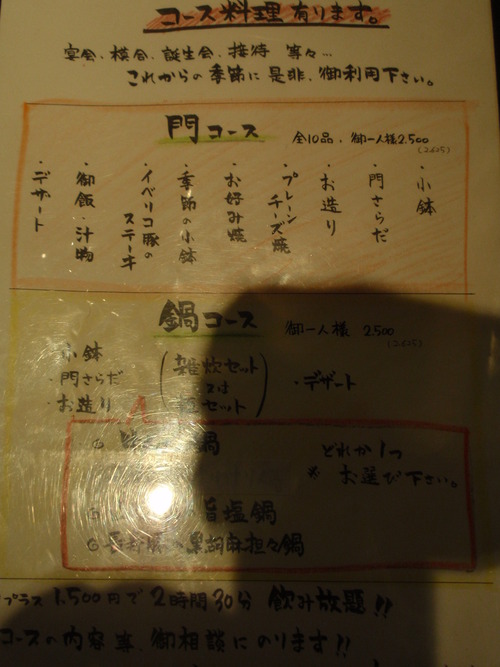 コース料理有ります。
宴会、横会、誕生会、接待 等々…
これからの季節に是非、御利用下さい。
門コース 全10品、御一人様2.500
(2625)
・小鉢
・門さらだ
・お造り
・プレーンチーズ焼
・お好み焼
・季節の小鉢
・イベリコ豚のステーキ
・御飯 汁物
・デザート
鍋コース 御一人様 2.500
(2625)
小鉢
・門さらだ
・お造り
(雑炊セット
又は
セット)
・デザート
鍋
どれか1つ
※お選び下さい。
旨塩鍋
黒胡麻担々鍋
プラス1,500円で2時間30分 飲み放題!!
コースの内容等、御相談にのります!!